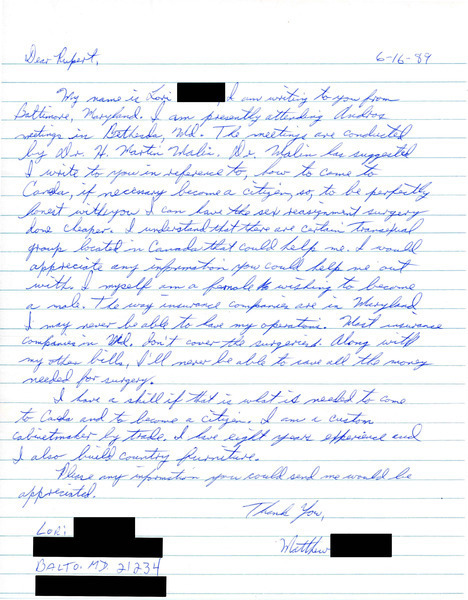 Dear Rupert, 6-16-89
My name is Lori I am writing to you from
Baltimore, Maryland. I am presently attending Andros
meetings in Bethesda, Md. The meetings are conducted
by Dr. H. Martin Malin. Dr. Malin has suggested
I write to you in reference to, how to come to
Canada, if necessary become a citizen, so, to be perfectly
honest with you I can have the sex reassignment surgery
done cheaper. I understand that there are certain transexual
group located in Canada that could help me. I would
appreciate any information you could help me out
with. I myself am a female wishing to become
a male. The way insurance companies are in Maryland
I may never be able to have my operations. Most insurance
companies in Md. don't cover the surgeries. Along with
my other bills, I'll never be able to save all the money
needed for surgery.
I have a skill if that is what is needed to come
to Canada and to become a citizen. I am a custom
cabinetmaker by trade. I have eight years experience and
I also build country furniture.
Please any information you could send me would be
appreciated.
Thank You,
Lori
Matthew
BALTO. MD 21234